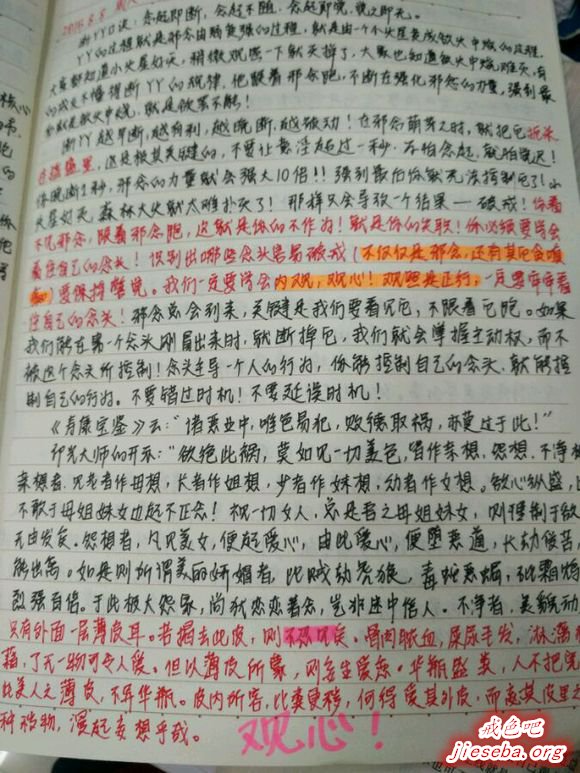 2016.8.5
断YY口诀：念起即断，念起不随，念起即觉，觉之即无。
YY的过程就是邪念由弱变强的过程，就是由一个小火星变成欲火中烧的过程。
大家都知道小火星好灭，稍微观照一下就灭掉了，大家也知道欲火中烧难灭，有
的戒友不懂得断YY的规律，他跟着邪念跑，不断在强化邪念的力量，强到最
后就是欲火中烧，就是欲罢不能！
断YY越早断，越有利，越晚断，越被动！在邪念萌芽之时，就把它扼杀
在摇篮里，这是极其关键的，不要让意淫超过一秒，不怕念起，就怕觉迟！
你晚断1秒，邪念的力量就会强大10倍！！强到最后你就无法控制它了！小
火星好灭，森林大火就太难扑灭了！那样只会导致一个结果——破戒！你看
不见邪念，跟着邪念跑，这就是你的不作为！就是你的失职！你必须要学会
看住自己的念头！识别出哪些念头容易破戒（不仅仅是邪念，还有其它负喷
），要保持警觉。我们一定要学会内观，观心！观照是正行，一定要牢牢看
住自己的念头！邪念总会到来，关键是我们要看见它，不跟着它跑。如果
我们能在第一个念头刚冒出来时，就断掉它，我们就会掌握主动权，而不
被这个念头所控制！念头主导一个人的行为，你能控制自己的念头，就能控
制自己的行为。不要错过时机！不要延误时机！
《寿康宝鉴》云："诸恶业中，唯色易犯，败德取祸，亦莫过于此！"
印光大师的开示："欲绝此祸，莫如见一切美色，当作亲想，怨想，不净想
亲想者，见老者作母想，长者作姐想，少者作妹想，幼者作女想。欲心纵盛，
不敢于母姐妹女边起不正念！视一切女人，总是吾之母姐妹女，则理制于欲
无由发矣。怨想者，凡见美女，便起爱心，由此爱心，便堕恶道，长劫受苦，
能出离。如是则所谓美丽娇媚者，比贼劫虎狼，毒蛇恶蝎，砒霜鸩
烈强百倍。于此极大怨家，尚犹恋恋着念，岂非迷中倍人。不净者，美貌动
只有外面一层薄皮耳。若揭去此皮，则不忍见矣。骨肉脓血，屎尿毛发，淋漓狼
藉，了无一物可令人爱。但以薄皮所蒙，则妄生爱恋。华瓶盛粪，人不把玩
此美人之薄皮，不异华瓶。皮内所容，比粪更秽，何得爱其外皮，而忘其皮里之
种秽物，漫起妄想乎哉。
观心！
戒色吧
jieseba.org